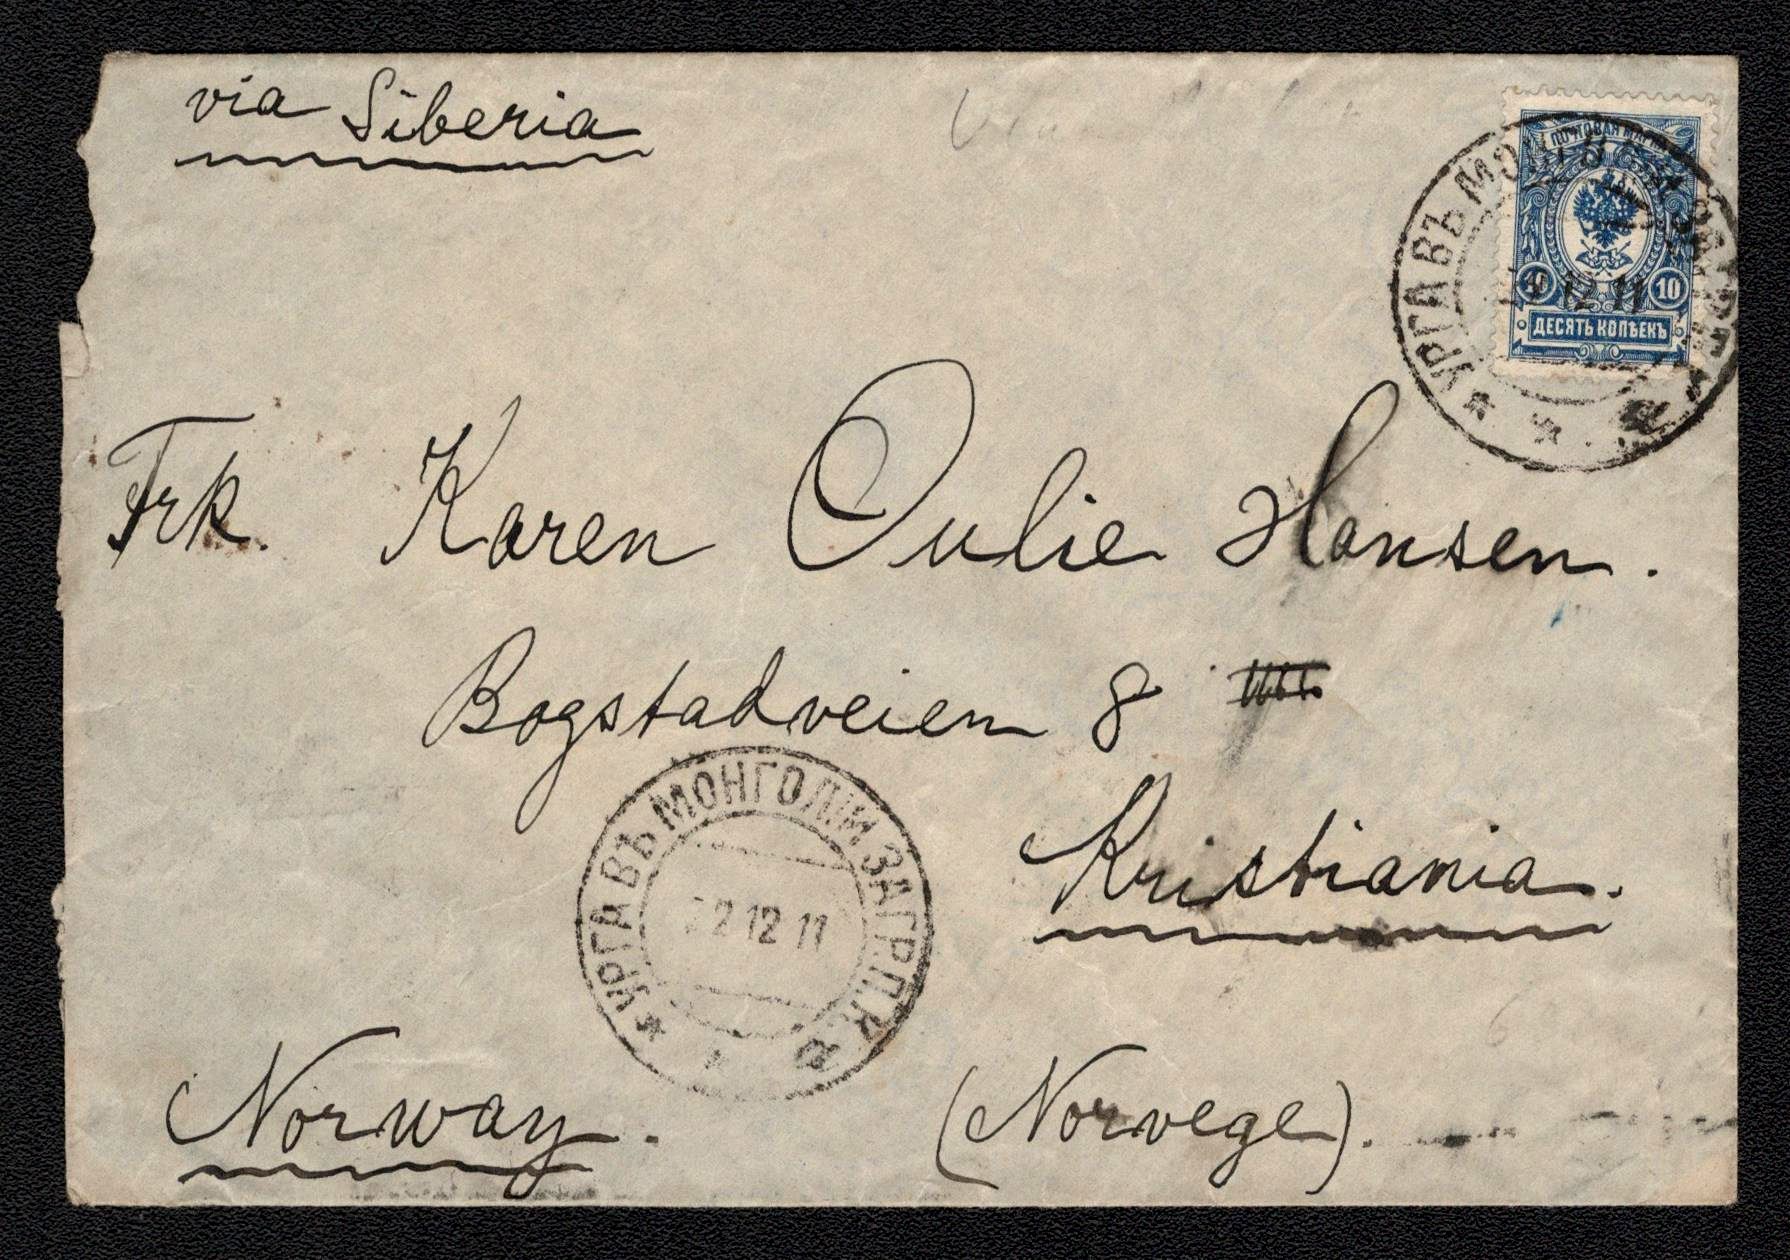 via Siberia
ПОЧТОВАЯ МАРКА
10 10
ДЕСЯТЬ КОПѢЕКЪ
УРГА ВЪ МОНГ
12 11
Frk. Karen Oulie Hansen.
Bogstadveien 8
Kristiania.
УРГА ВЪ МОНГОЛІИ ЗАГР.П.К. а
2 12 11
Norway. (Norvege).